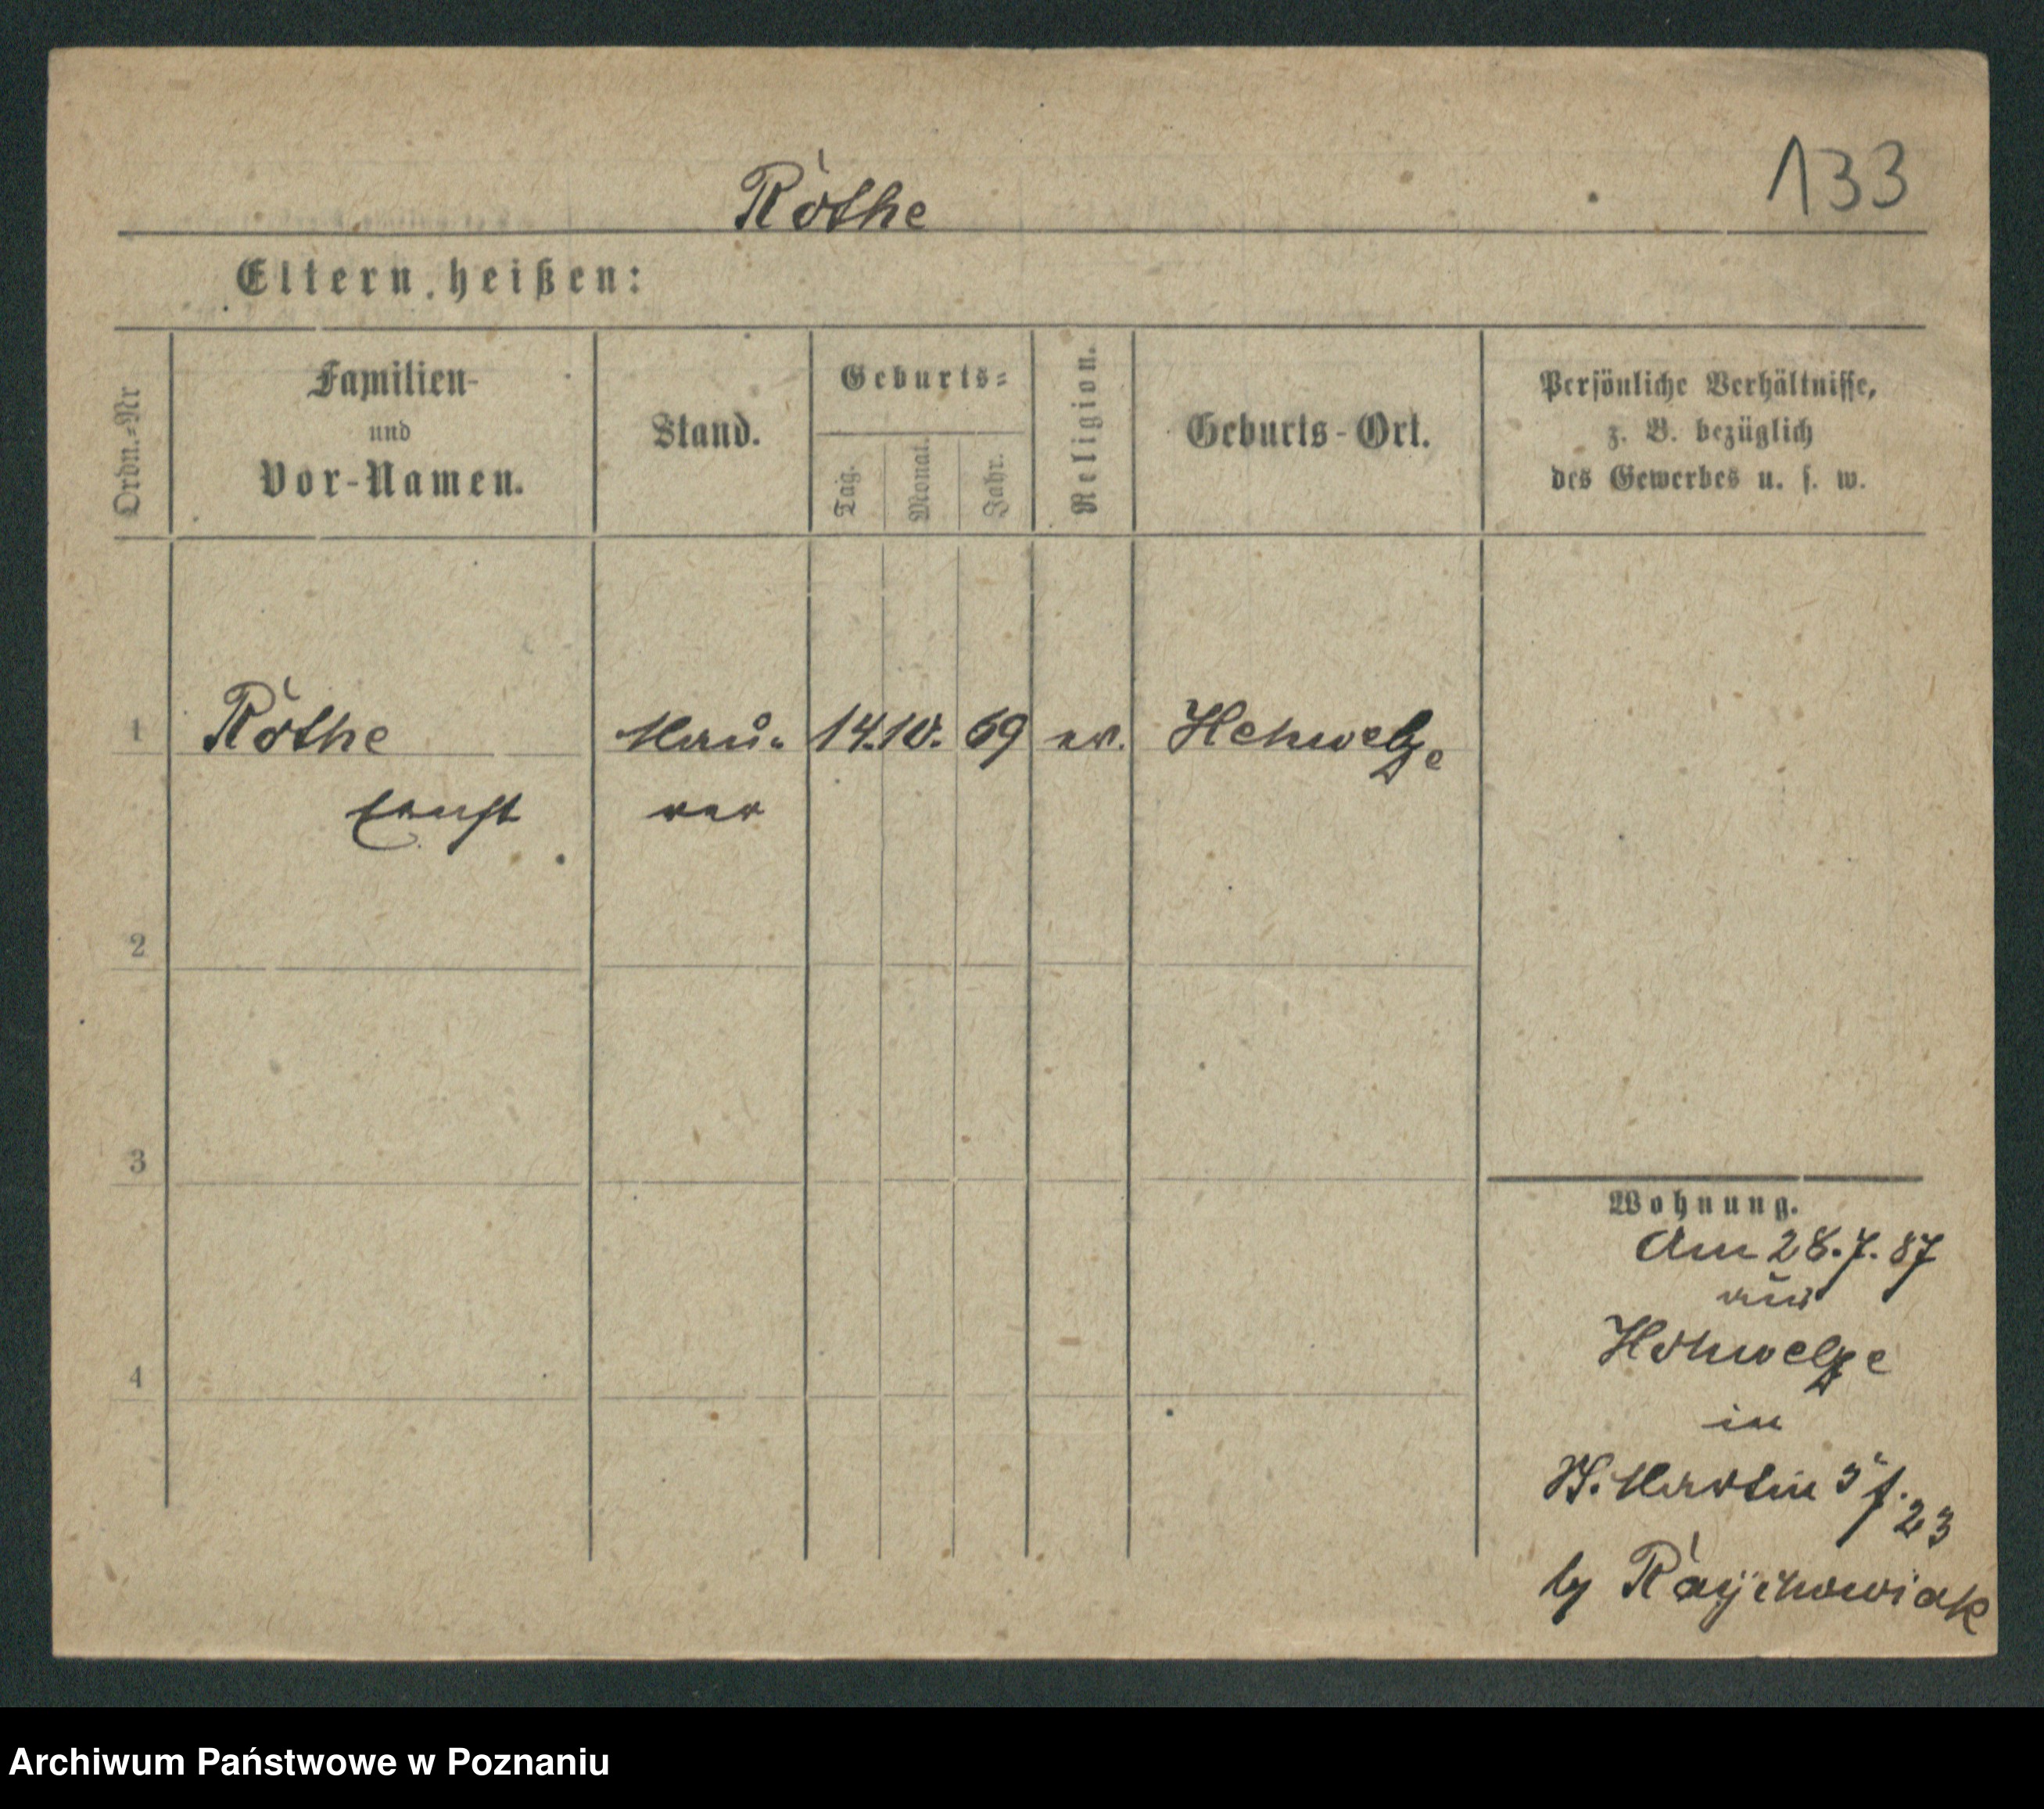 133
Röthe
Eltern heißen:
Ordn.-Nr
Familien-
und
Vor-Namen.
Stand.
Geburts-
Tag.
Monat.
Jahr.
Religion.
Geburts-Ort.
Persönliche Verhältnisse,
z. B. bezüglich
des Gewerbes u. s. w.
1 Röthe Mau- 14. 10. 69 ev. Hohwelze
Ernst rer
2
3
4
Wohnung.
Am 28.7.87
aus
Hohwelze
in
St. Martin
23
by
Archiwum Państwowe w Poznaniu